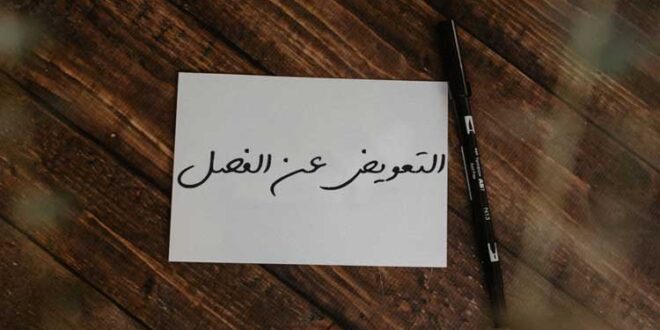 التعويض عن الفصل